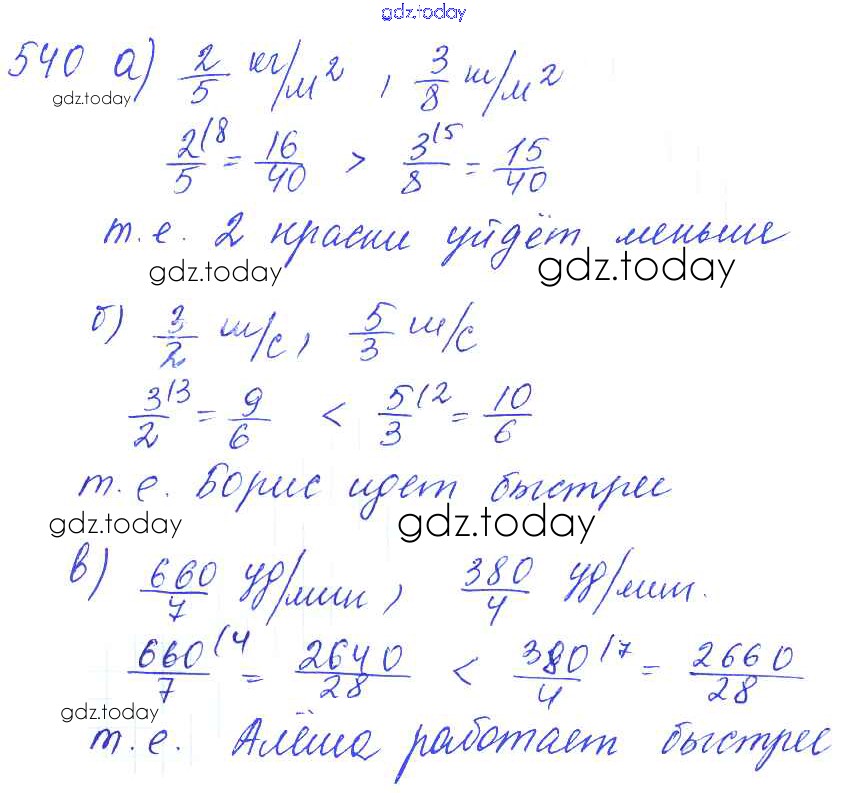 gdz.today
540 а) 2/5 кг/м², 3/8 ш/м²
gdz.today
2/5 (8 = 16/40 > 3/8 (5 = 15/40
т.е. 2 краски уйдёт меньше
gdz.today gdz.today
б) 3/2 ш/с, 5/3 ш/с
3/2 (3 = 9/6 < 5/3 (2 = 10/6
т.е. Борис идет быстрее
gdz.today gdz.today
в) 660/7 уд/мин, 380/4 уд/мин.
660/7 (4 = 2640/28 < 380/4 (7 = 2660/28
gdz.today
т.е. Алёша работает быстрее